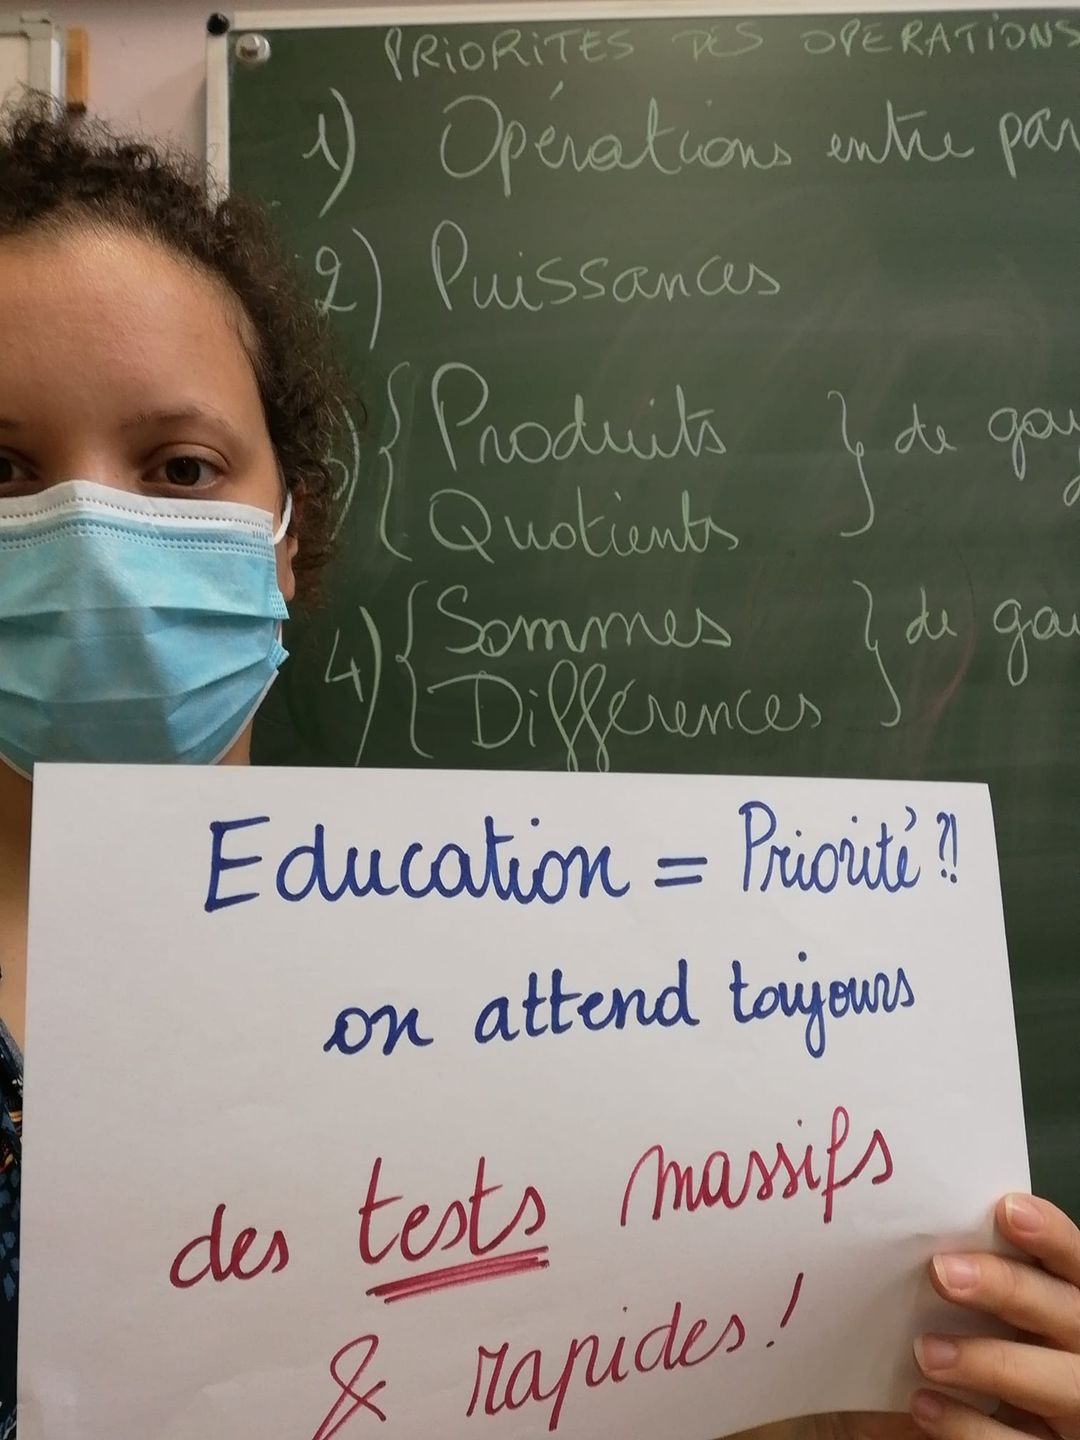 PRIORITES DES OPERATIONS
1) Opérations entre
2) Puissances
{ Produits } de
Quotients
4) { Sommes } de
Différences
Education = Priorité ?!
on attend toujours
des tests massifs
& rapides !